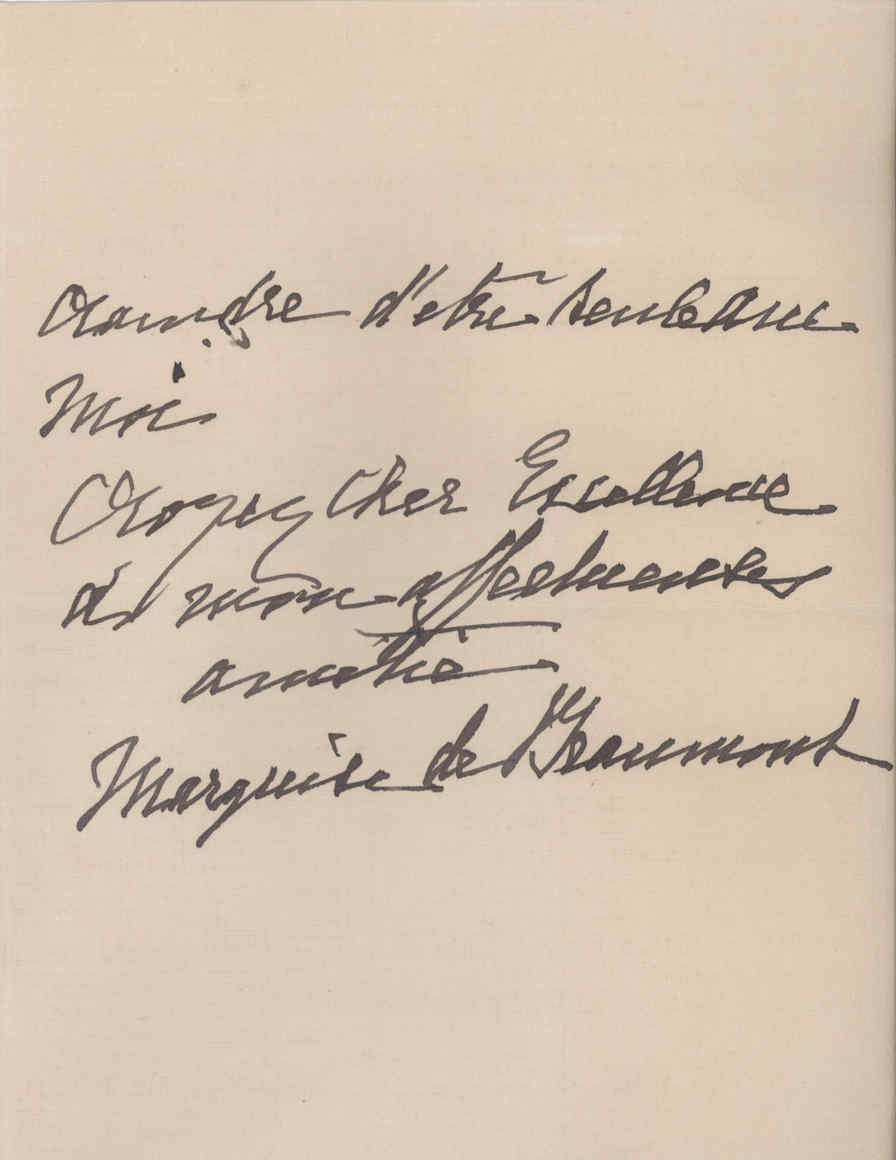 craindre d'être seule avec
moi
Croyez cher Excellence
à mon affectueuse
amitié
Marquise de Beaumont